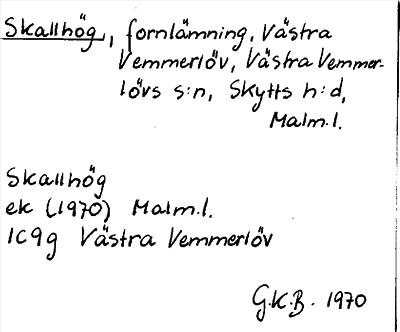 Skallhög, fornlämning, Västra
Vemmerlöv, Västra Vemmer-
lövs s:n, Skytts h:d,
Malm.l.
Skallhög
ek (1970) Malm.l.
1C9g Västra Vemmerlöv
G.K.B. 1970